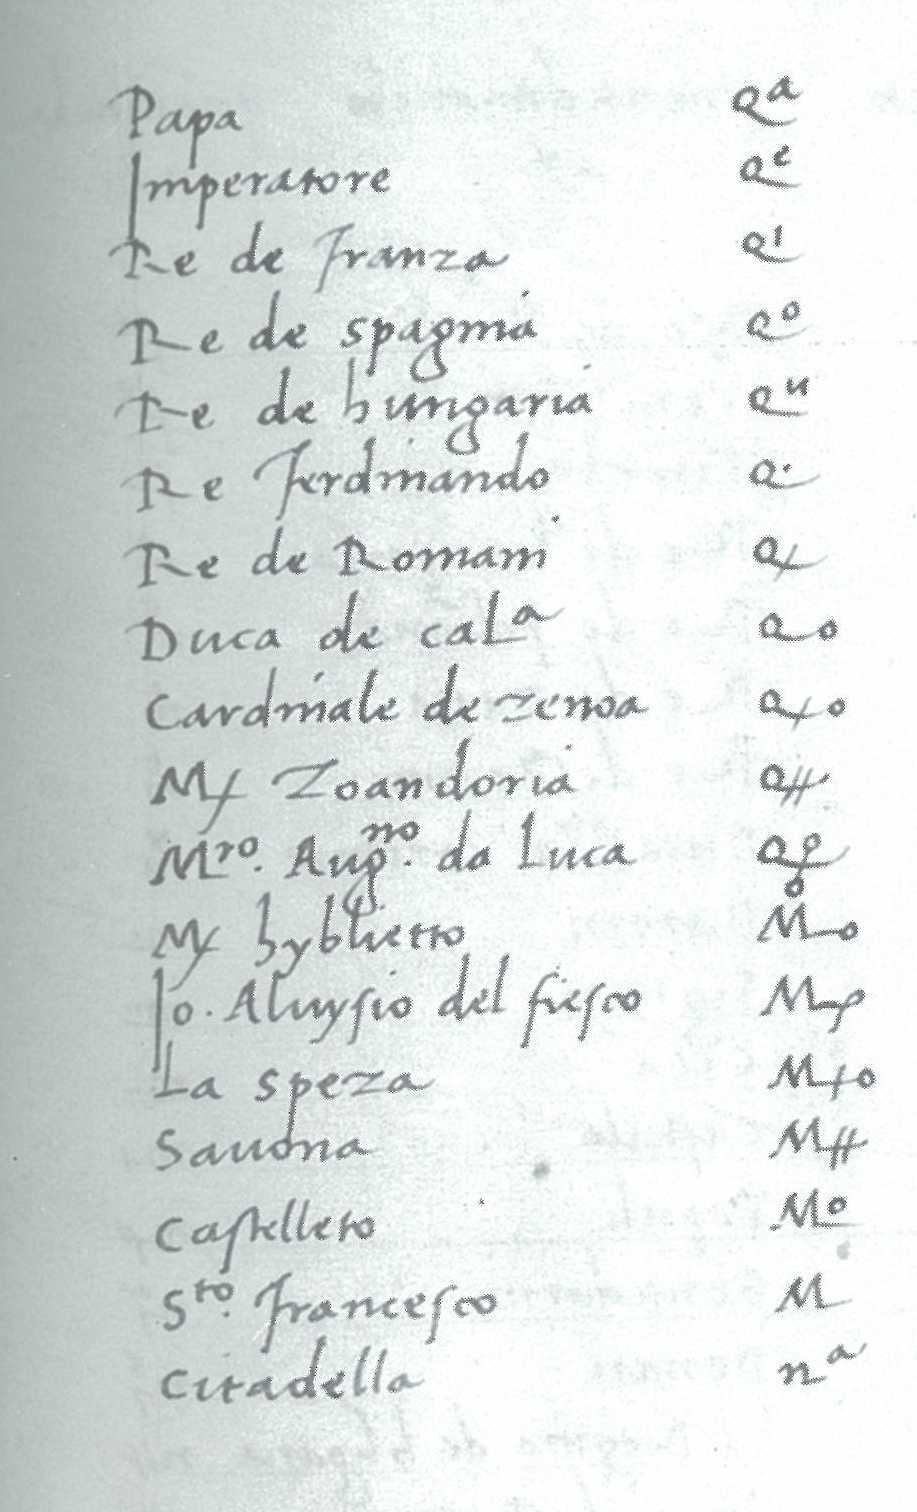 Papa Qᵃ
Imperatore Qᵉ
Re de Franza Qⁱ
Re de spagnia Qᵒ
Re de hungaria Qᵘ
Re Ferdinando Q·
Re de Romani Q
Duca de calᵃ Qo
Cardinale de zenoa Q+o
M Zoandoria Q
Mʳᵒ. Augⁿᵒ. da Luca Q
M hyblietto Mo
Jo. Aluysio del fiesco M
La speza M+o
Sauona M
Castelleto Mᵒ
Sᵗᵒ. Francesco M
Citadella nᵃ